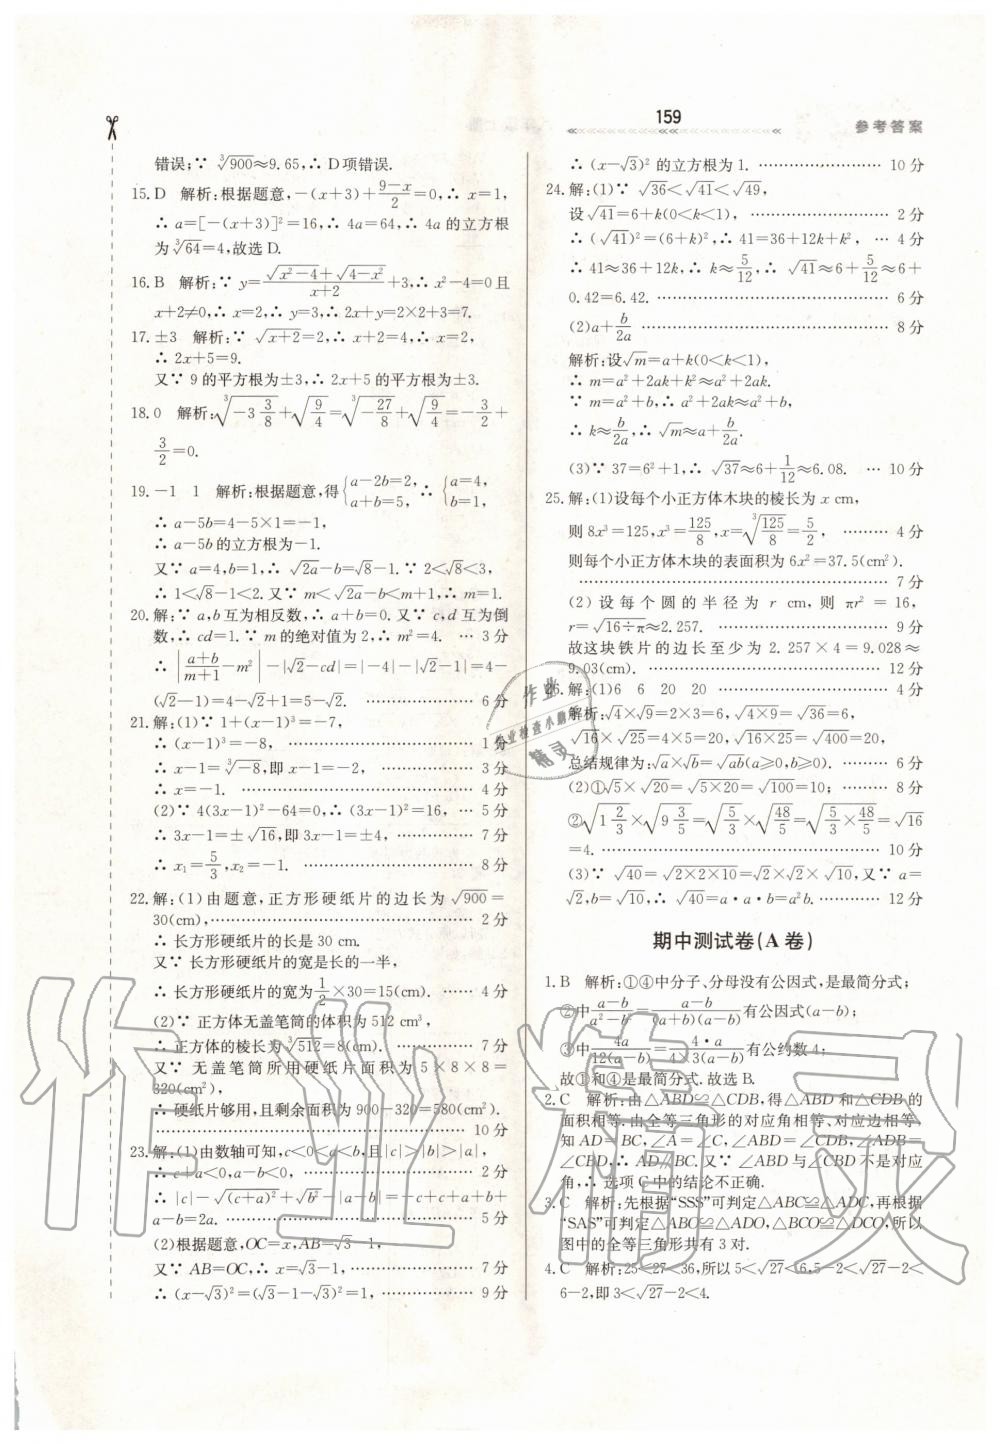 159
参考答案
错误;∵ ∛900≈9.65,∴ D项错误.
15. D 解析:根据题意,-(x+3)+(9-x)/2=0,∴ x=1,
∴ a=[-(x+3)]²=16,∴ 4a=64,∴ 4a 的立方根
为∛64=4,故选 D.
16. B 解析:∵ y=(√(x²-4)+√(4-x²))/(x+2)+3,∴ x²-4=0且
x+2≠0,∴ x=2,∴ y=3,∴ 2x+y=2×2+3=7.
17. ±3 解析:∵ √(x+2)=2,∴ x+2=4,∴ x=2,
∴ 2x+5=9.
又∵ 9的平方根为±3,∴ 2x+5的平方根为±3.
18. 0 解析:∛(-3 3/8)+√(9/4)=∛(-27/8)+√(9/4)=-3/2+
3/2=0.
19. -1 1 解析:根据题意,得{a-2b=2, a+b=5, ∴ {a=4, b=1,
∴ a-5b=4-5×1=-1,
∴ a-5b的立方根为-1.
又∵ a=4,b=1,∴ √(2a)-b=√8-1.∵ 2<√8<3,
∴ 1<√8-1<2.又∵ m<√(2a)-b<m+1,∴ m=1.
20. 解:∵ a,b互为相反数,∴ a+b=0.又∵ c,d互为倒
数,∴ cd=1.∵ m的绝对值为2,∴ m²=4. … 3分
∴ |(a+b)/(m+1)-m²|-|√2-cd|=|-4|-|√2-1|=4-
(√2-1)=4-√2+1=5-√2. ………… 6分
21. 解:(1)∵ 1+(x-1)³=-7,
∴ (x-1)³=-8, ………… 1分
∴ x-1=∛-8,即x-1=-2, ………… 3分
∴ x=-1. ………… 4分
(2)∵ 4(3x-1)²-64=0,∴ (3x-1)²=16, … 5分
∴ 3x-1=±√16,即3x-1=±4, ………… 7分
∴ x₁=5/3,x₂=-1. ………… 8分
22. 解:(1)由题意,正方形硬纸片的边长为√900=
30(cm), ………… 2分
∴ 长方形硬纸片的长是30 cm.
又∵ 长方形硬纸片的宽是长的一半,
∴ 长方形硬纸片的宽为1/2×30=15(cm). …… 4分
(2)∵ 正方体无盖笔筒的体积为512 cm³,
∴ 正方体的棱长为∛512=8(cm). ………… 7分
又∵ 无盖笔筒所用硬纸片面积为5×8×8=
320(cm²),
∴ 硬纸片够用,且剩余面积为900-320=580(cm²).
………… 10分
23. 解:(1)由数轴可知,c<0<a<b,且|c|>|b|>|a|,
∴ c+a<0,a-b<0, ………… 2分
∴ |c|-√(c+a)²+√b²-|a-b|=-c+c+a+b+
a-b=2a. ………… 5分
(2)根据题意,OC=x,AB=√3-1,
又∵ AB=OC,∴ x=√3-1, ………… 7分
∴ (x-√3)²=(√3-1-√3)²=1, ………… 9分
∴ (x-√3)²的立方根为1. ………… 10分
24. 解:(1)∵ √36<√41<√49,
设√41=6+k(0<k<1), ………… 2分
∴ (√41)²=(6+k)²,∴ 41=36+12k+k², … 4分
∴ 41≈36+12k,∴ k≈5/12,∴ √41≈6+5/12≈6+
0.42=6.42. ………… 6分
(2)a+b/2a ………… 8分
解析:设√m=a+k(0<k<1),
∴ m=a²+2ak+k²≈a²+2ak.
∵ m=a²+b,∴ a²+2ak≈a²+b,
∴ k≈b/2a,∴ √m≈a+b/2a.
(3)∵ 37=6²+1,∴ √37≈6+1/12≈6.08. … 10分
25. 解:(1)设每个小正方体木块的棱长为x cm,
则8x³=125,x³=125/8,x=∛(125/8)=5/2, ……… 4分
则每个小正方体木块的表面积为6x²=37.5(cm²).
………… 7分
(2)设每个圆的半径为r cm,则πr²=16,
r=√(16÷π)≈2.257. ………… 9分
故这块铁片的边长至少为2.257×4=9.028≈
9.03(cm). ………… 12分
26. 解:(1)6 6 20 20 ………… 4分
解析:√4×√9=2×3=6,√(4×9)=√36=6,
√16×√25=4×5=20,√(16×25)=√400=20,
总结规律为:√a×√b=√ab(a≥0,b≥0). ……… 6分
(2)①√5×√20=√(5×20)=√100=10; ……… 8分
②√(1 2/3)×√(9 3/5)=√(5/3)×√(48/5)=√(5/3×48/5)=√16
=4. ………… 10分
(3)∵ √40=√(2×2×10)=√2×√2×√10,又∵ a=
√2,b=√10,∴ √40=a·a·b=a²b. ………… 12分
期中测试卷(A卷)
1. B 解析:①④中分子、分母没有公因式,是最简分式;
②中(a-b)/(a²-b²)=(a-b)/((a+b)(a-b))有公因式(a-b);
③中4a/(12(a-b))=(4·a)/(4×3(a-b))有公约数4;
故①和④是最简分式.故选B.
2. C 解析:由△ABD≌△CDB,得△ABD和△CDB的
面积相等.由全等三角形的对应角相等、对应边相等,
知AD=BC,∠A=∠C,∠ABD=∠CDB,∠ADB=
∠CBD,∴ AD∥BC.又∵ ∠ABD与∠CBD不是对应
角,∴ 选项C中的结论不正确.
3. C 解析:先根据“SSS”可判定△ABC≌△ADC,再根据
“SAS”可判定△ABO≌△ADO,△BCO≌△DCO,所以
图中的全等三角形共有3对.
4. C 解析:25<27<36,所以5<√27<6,5-2<√27-2<
6-2,即3<√27-2<4.
作业
作业检查小助手
精灵
作业精灵